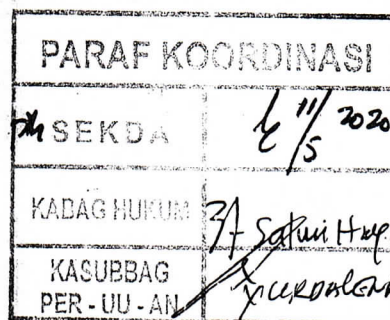 PARAF KOORDINASI
SEKDA 11/5 2020
KABAG HUKUM
KASUBBAG
PER-UU-AN